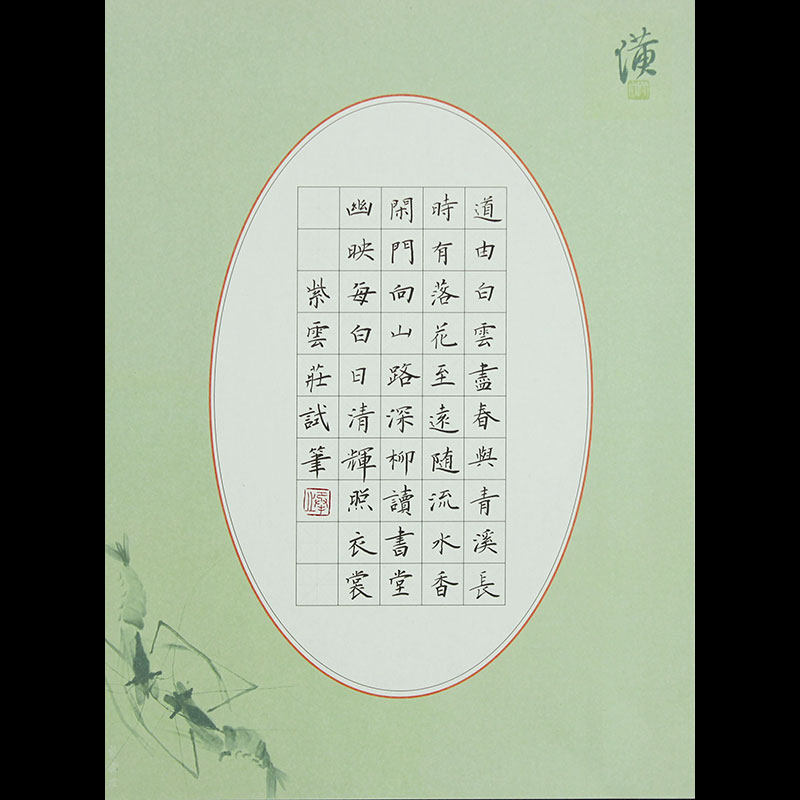 道由白雲盡春與青溪長
時有落花至遠随流水香
閑門向山路深柳讀書堂
幽映每白日清輝照衣裳
紫雲莊試筆